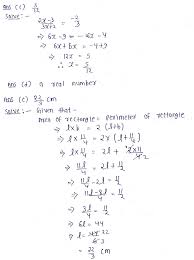 Ans (c) 5/12
Solve :- (2x-3)/(3x+2) = -2/3
⇒ 6x-9 = -6x-4
⇒ 6x+6x = -4+9
⇒ 12x = 5
∴ x = 5/12
Ans (d) a real number
Ans (c) 22/3 cm
Solve :- Given that -
area of rectangle = perimeter of rectangle
⇒ l×b = 2(l+b)
⇒ l×11/4 = 2×(l+11/4)
⇒ l×11/4 = 2l + 2×11/4
⇒ 11l/4 = 2l + 11/2
⇒ 11l/4 - 2l = 11/2
⇒ 11l-8l/4 = 11/2
⇒ 3l/4 = 11/2
⇒ 6l = 44
⇒ l =
= 22/3 cm